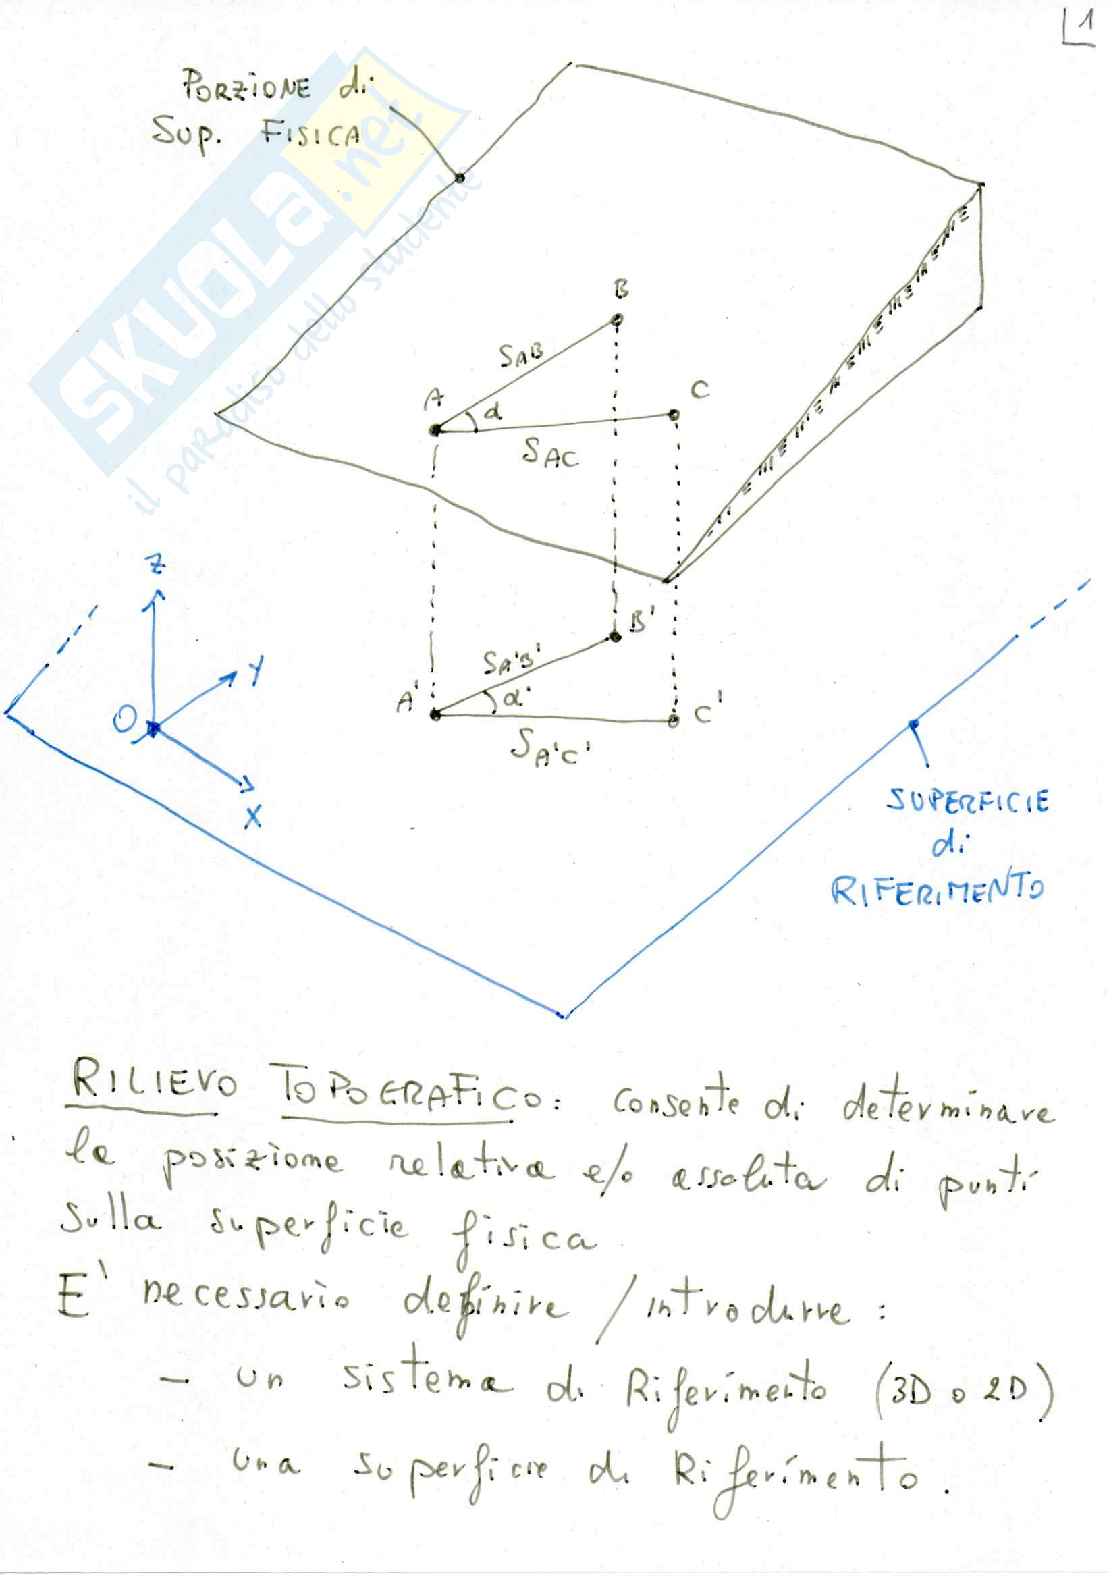 1
PORZIONE di
SUP. FISICA
SKUOLA.net
il paradiso dello studente
B
SAB
A
α
C
SAC
Z
Y
O
X
B'
SA'B'
A'
α'
C'
SA'C'
SUPERFICIE
di
RIFERIMENTO
RILIEVO TOPOGRAFICO: consente di determinare
la posizione relativa e/o assoluta di punti
sulla superficie fisica
E' necessario definire / introdurre :
- un sistema di Riferimento (3D o 2D)
- una superficie di Riferimento.